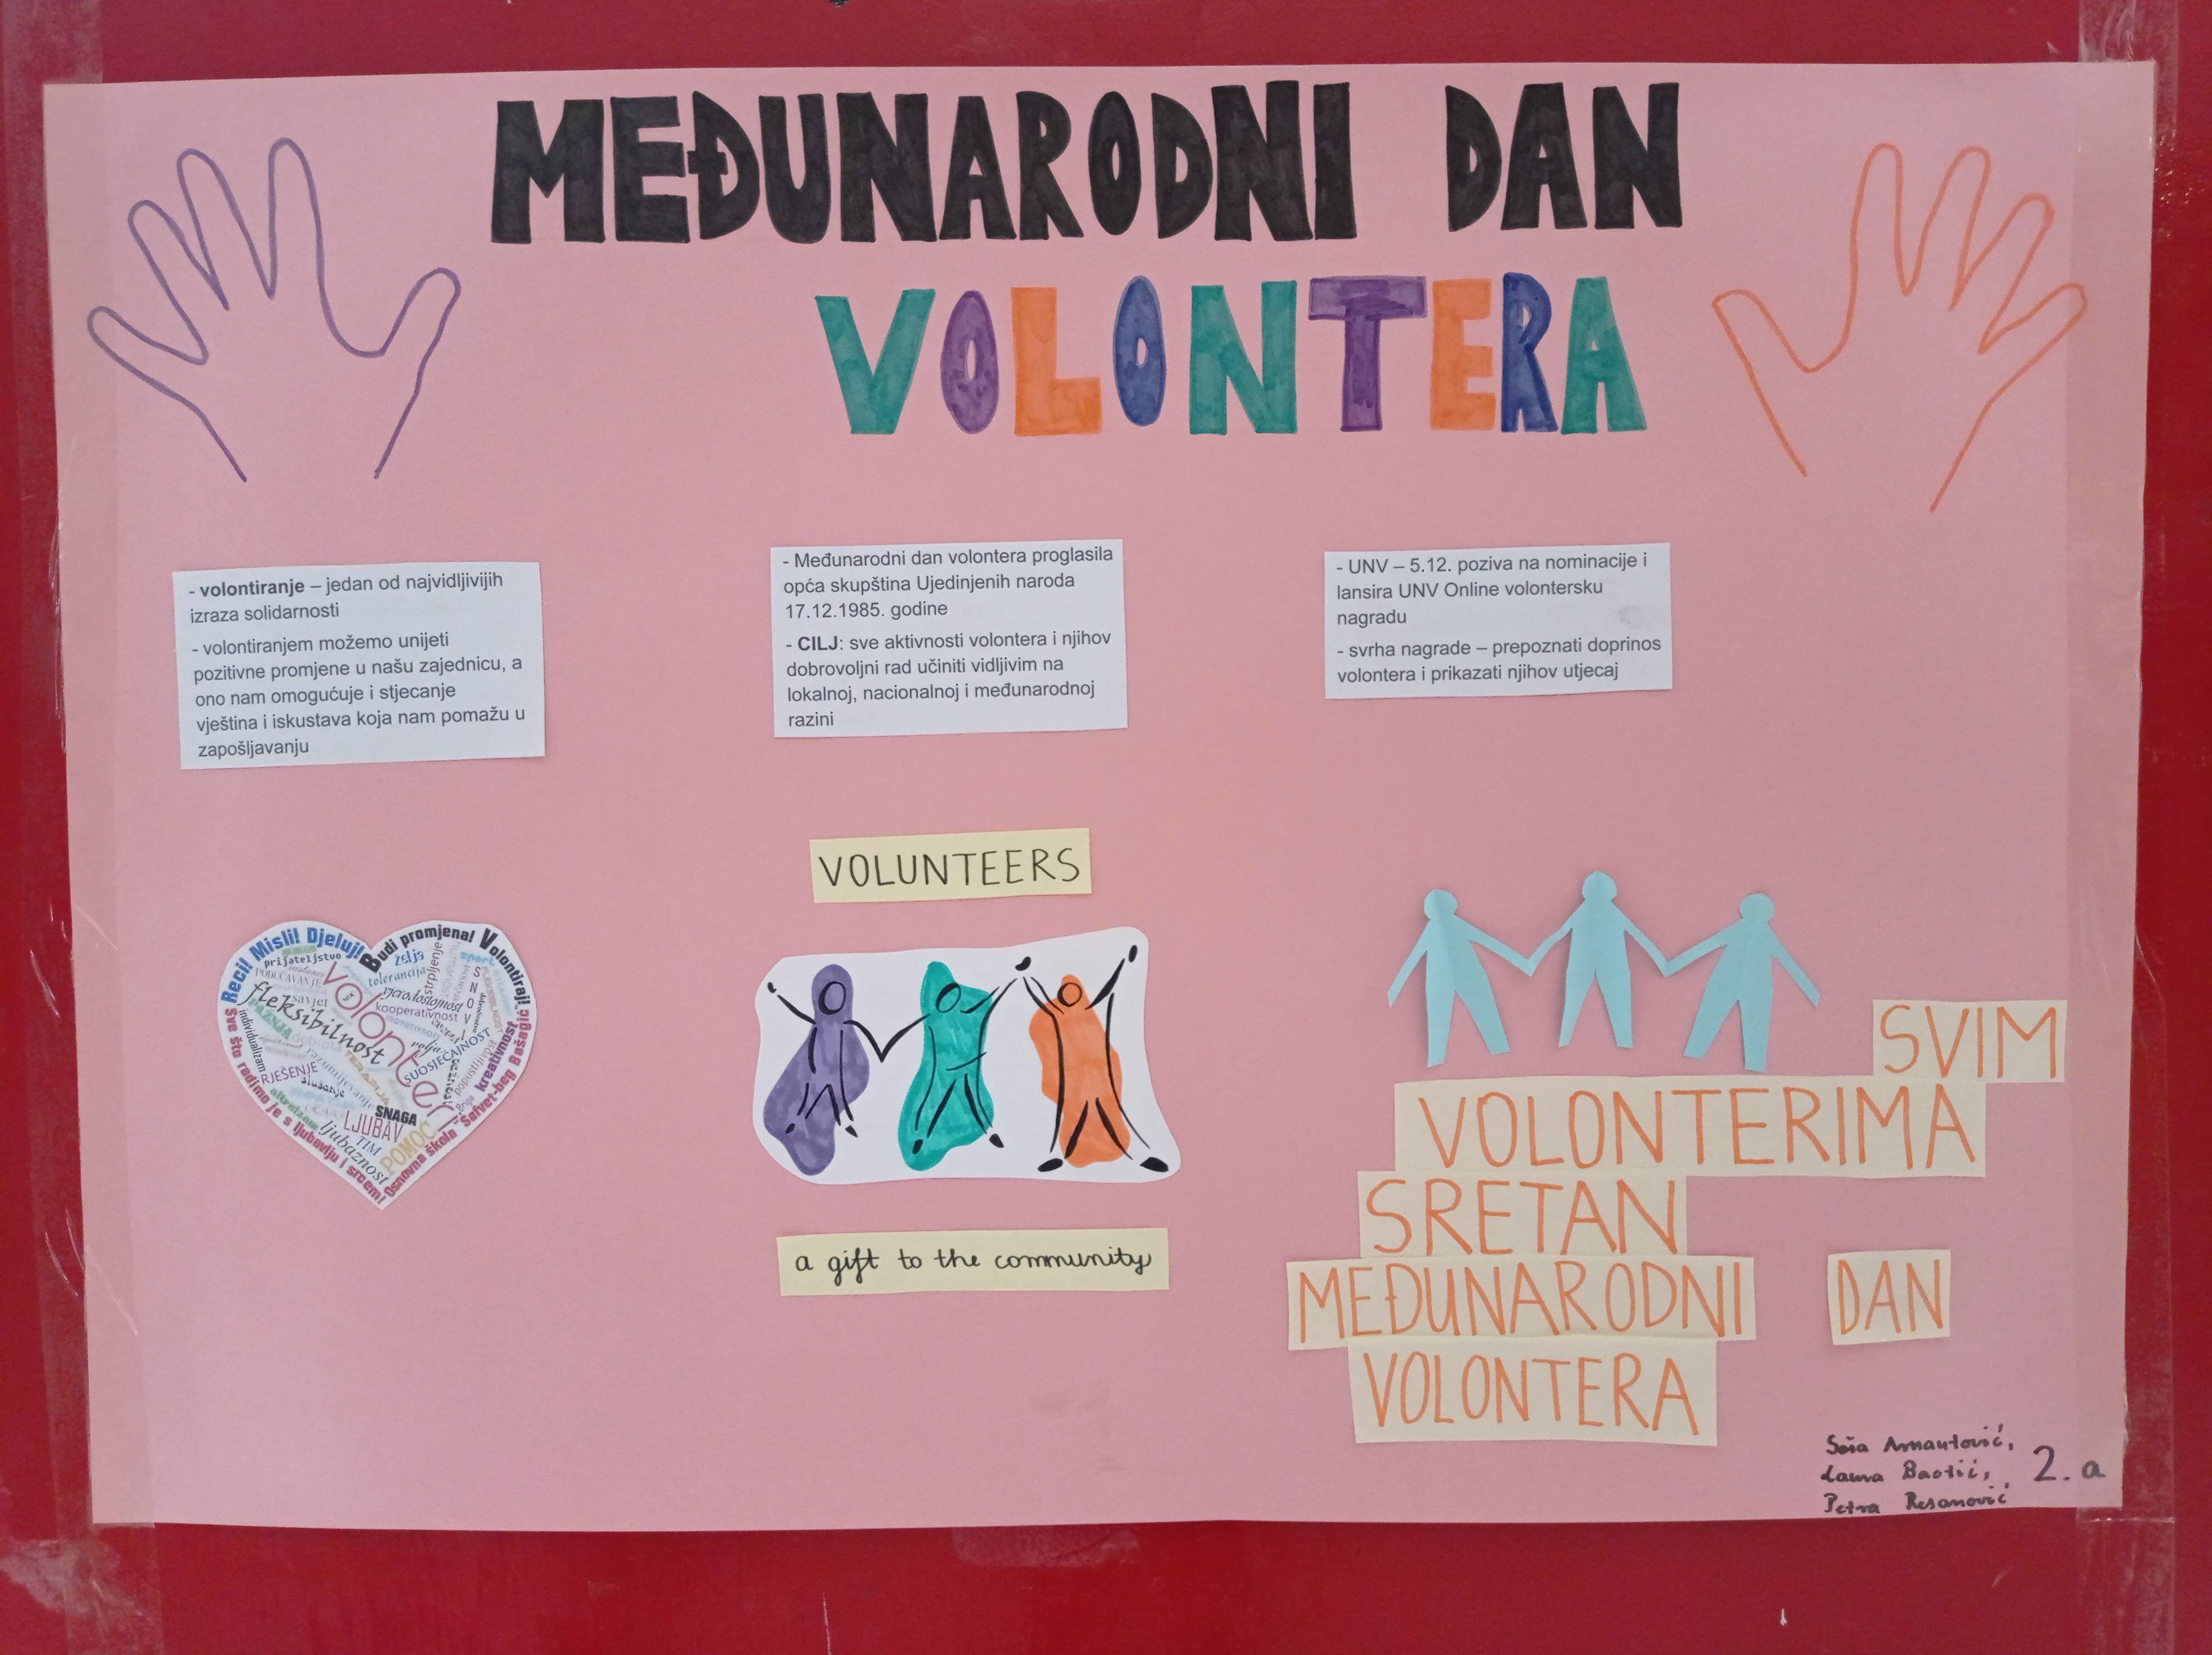 MEĐUNARODNI DAN
VOLONTERA
- volontiranje – jedan od najvidljivijih
izraza solidarnosti
- volontiranjem možemo unijeti
pozitivne promjene u našu zajednicu, a
ono nam omogućuje i stjecanje
vještina i iskustava koja nam pomažu u
zapošljavanju
- Međunarodni dan volontera proglasila
opća skupština Ujedinjenih naroda
17.12.1985. godine
- CILJ: sve aktivnosti volontera i njihov
dobrovoljni rad učiniti vidljivim na
lokalnoj, nacionalnoj i međunarodnoj
razini
- UNV – 5.12. poziva na nominacije i
lansira UNV Online volontersku
nagradu
- svrha nagrade – prepoznati doprinos
volontera i prikazati njihov utjecaj
Reci! Misli! Djeluj!
Budi promjena! Volontiraj!
prijateljstvo
želja
tolerancija
strpljenje
sport
PODUČAVANJE
savjet
fleksibilnost
volonter
vjerodostojnost
kooperativnost
SNOVI
volja
SUOSJEĆAJNOST
kreativnost
popustljivost
PAŽNJA
dobrota
individualizam
razumijevanje
TERAPIJA
RJEŠENJE
slušanje
altruizam
SNAGA
LJUBAV
TIM
ljubaznost
POMOĆ
Sve što radimo je s ljubavlju i srcem!
Osnovna škola "Safvet-beg Bašagić"
VOLUNTEERS
a gift to the community
SVIM
VOLONTERIMA
SRETAN
MEĐUNARODNI DAN
VOLONTERA
Arnautović,
Laura Baotić, 2. a
Petra Resanović